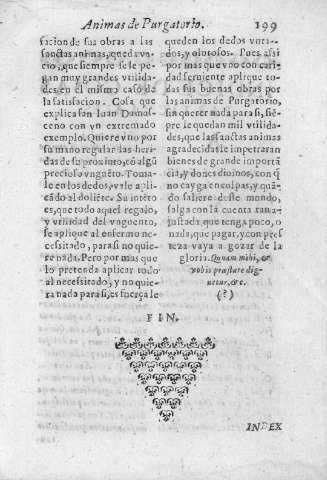 Animas de Purgatorio. 199
facion de sus obras a las
sanctas animas, que di vn
cio, que siempre se le pe-
gan muy grandes vtilida-
des, en el mismo caso da
la satisfacion. Cosa que
explica san Iuan Damas-
ceno con vn extremado
exemplo. Quiere vno por
su mano regalar las heri-
das de su proximo, cō algū
precioso vnguēto. Toma-
le en los dedos, vale apli-
cādo al doliēte. Su intero
es, que todo aquel regalo,
y vtilidad del vnguento,
se aplique al enfermo ne-
cessitado, para si no quie-
re nada. Pero por mas que
lo pretenda aplicar todo
al necessitado, y no quie-
ra nada para si, es fuerça le
queden los dedos vnta-
dos, y olorosos. Pues assi
por mas que vno con cari-
dad feruiente aplique to-
das sus buenas obras por
las animas de Purgatorio,
sin querer nada para si, siē-
pre le quedan mil vtilida-
des, que las sanctas animas
agradecidas le impetraran
bienes de grande importā
cia, y dones diuinos, con q̄
no cayga en culpas, y quā-
do saliere deste mondo,
salga con la cuenta ran a-
justada que tenga poco, o
nada, que pagar, y con pres
teza vaya a gozar de la
gloria. Quam mihi, &
vobis præstare dig
netur, &c.
(?)
FIN.
INDEX